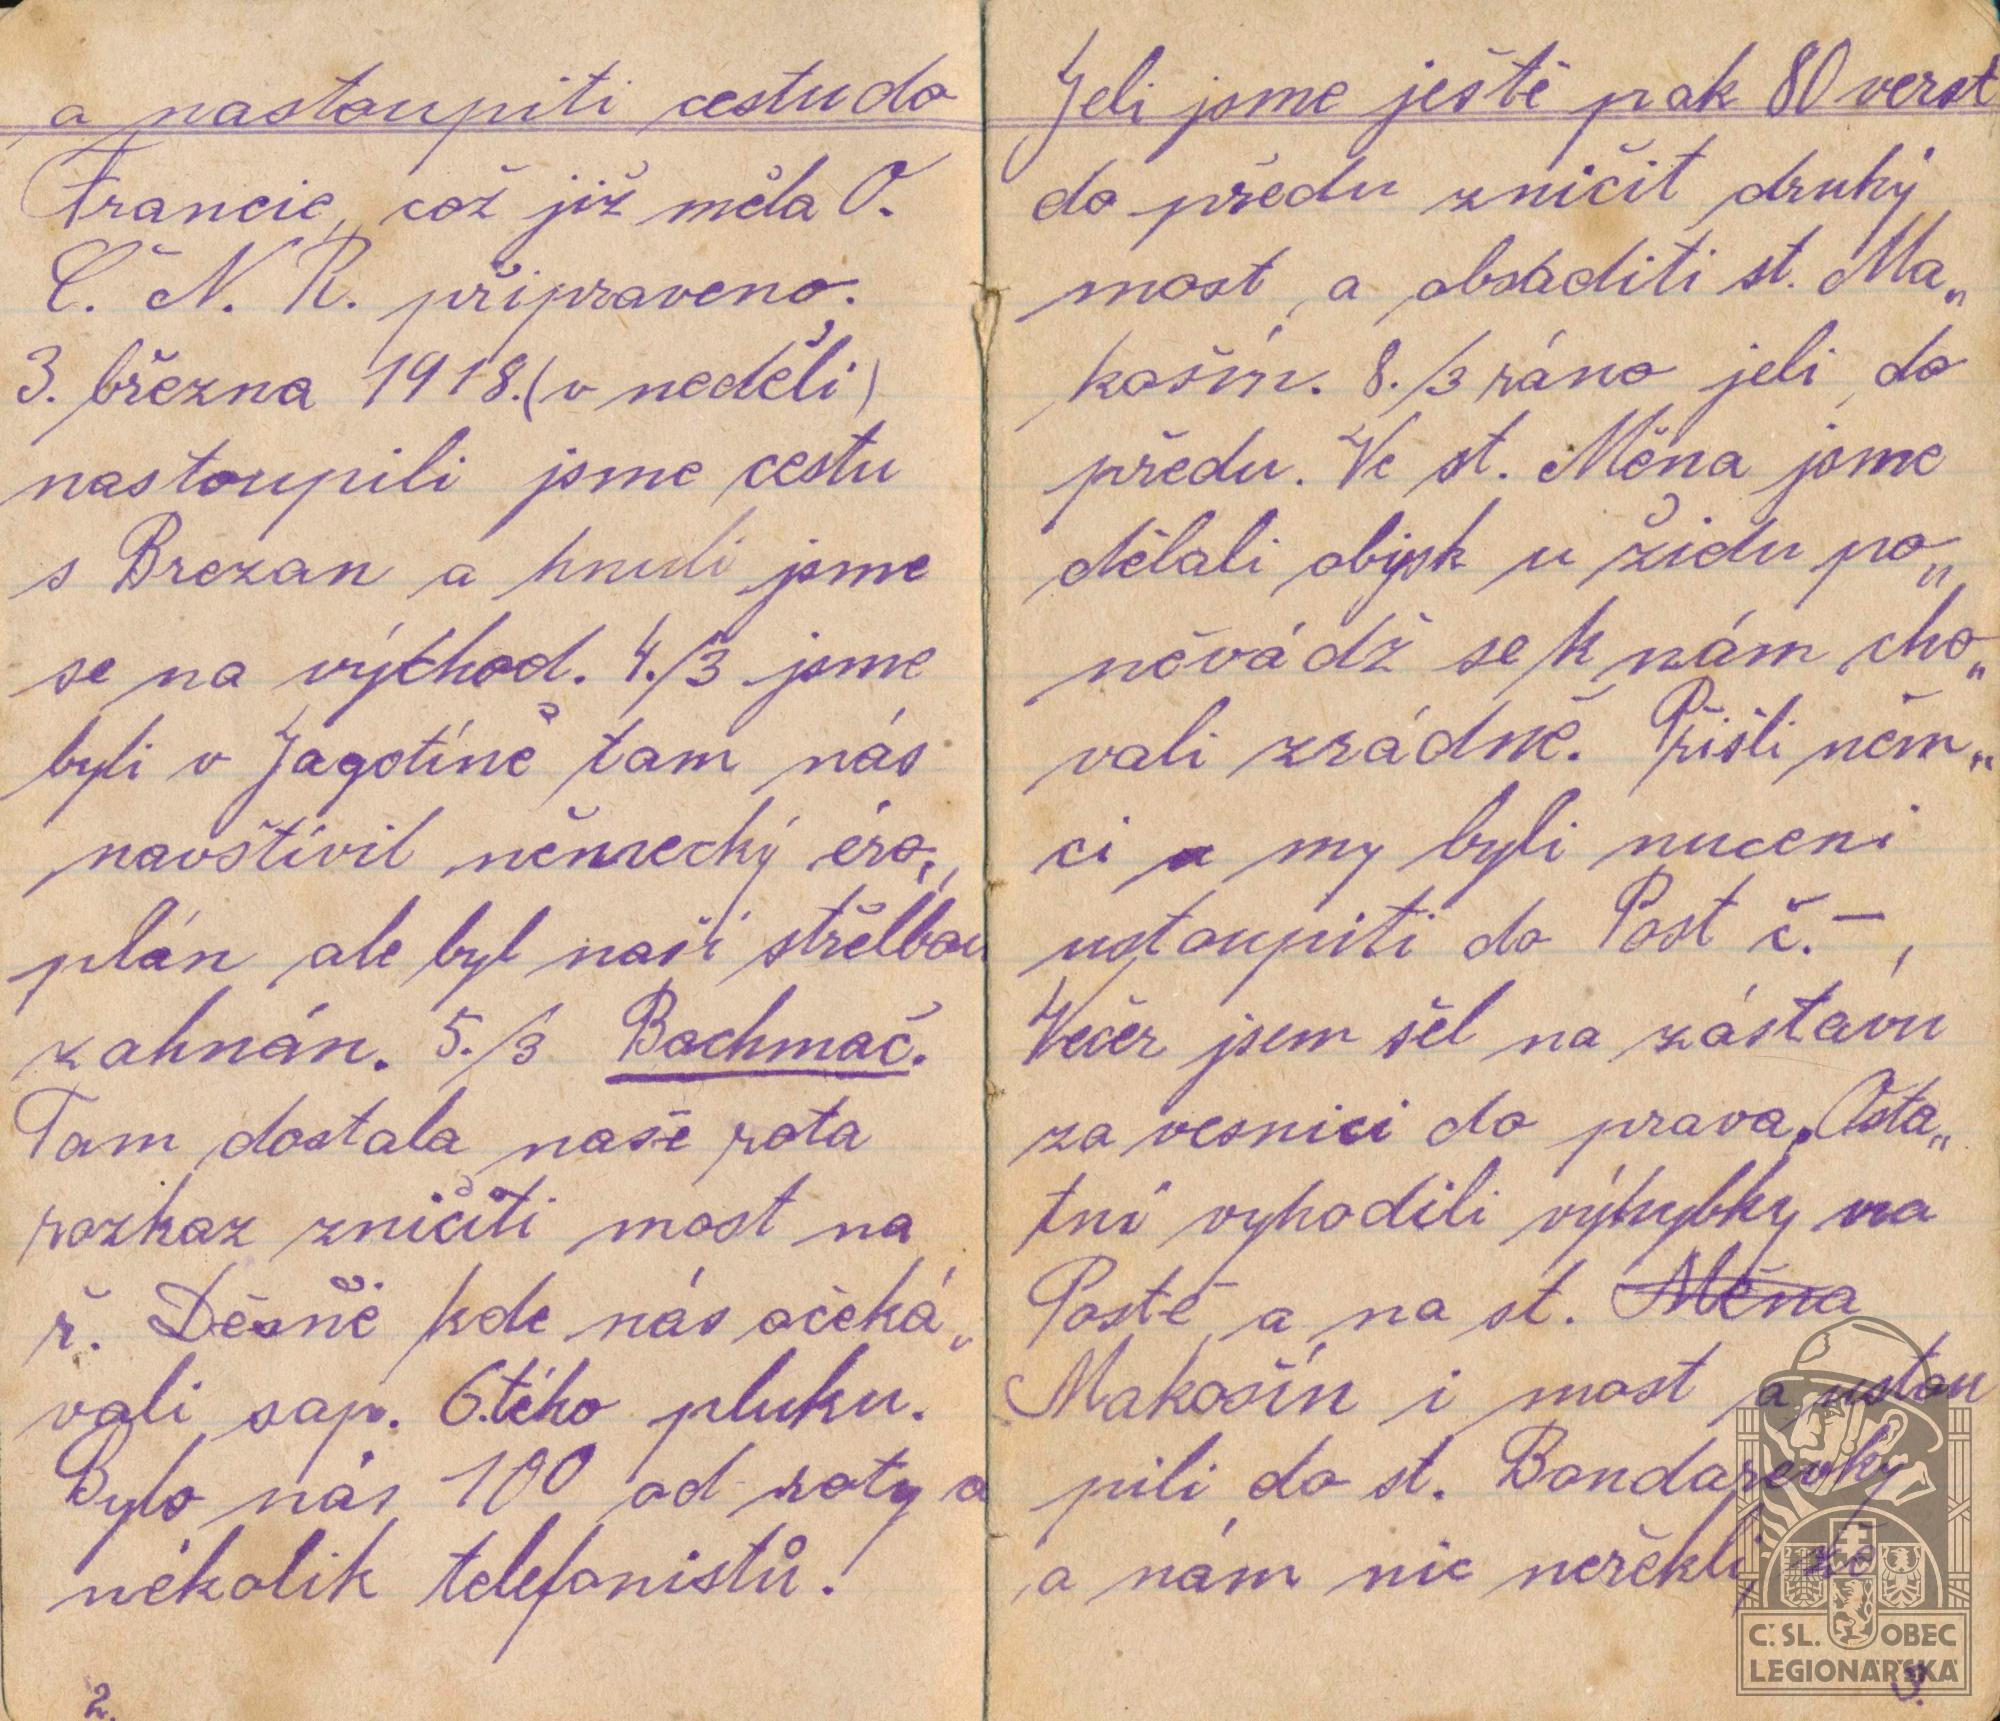 a nastoupiti cestu do
Francie, což již měla O.
Č. N. R. připraveno.
3. března 1918. (v neděli)
nastoupili jsme cestu
s Brezan a hnuli jsme
se na východ. 4./3 jsme
byli v Jagotíně tam nás
navštívil německý éro„
plán ale byl naší střelbou
zahnán. 5./3 Bachmač.
Tam dostala naše rota
rozkaz zničiti most na
ř. Děsně kde nás očeká„
vali sap. 6.tého pluku.
Bylo nás 100 od roty a
někólik telefonistů.
2.
Jeli jsme ještě pak 80 verst
do předu zničit druhý
most, a obsaditi st. Ma„
košín. 8./3 ráno jeli do
předu. Ve st. Měna jsme
dělali obisk u židu po„
něvádž se k nám cho„
vali zrádně. Přišli něm„
ci a my byli nuceni
ustoupiti do Post č. –,
Večer jsem šel na zástavu
za vesnici do prava. Osta„
tní vyhodili výhybky na
Postě a na st. Měna
Makošín i most a ustou
pili do st. Bondarevky
a nám nic neřekli, že
3.
Č. SL. OBEC
LEGIONÁŘSKÁ